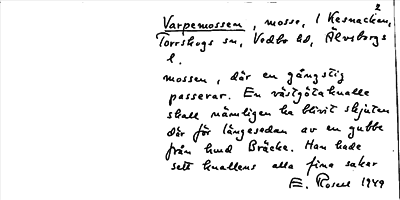 2
Varpemossen, mosse, i Kesnacken,
Torrskogs sn, Vedbo hd, Älvsborgs
l.
mossen, där en gångstig
passerar. En västgötaknalle
skall nämligen ha blivit skjuten
där för längesedan av en gubbe
från hmd Bräcke. Han hade
sett knallens alla fina saker
E. Rosell 1949